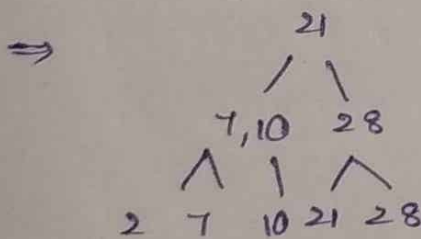 ⇒ 21
7,10 28
2 7 10 21 28